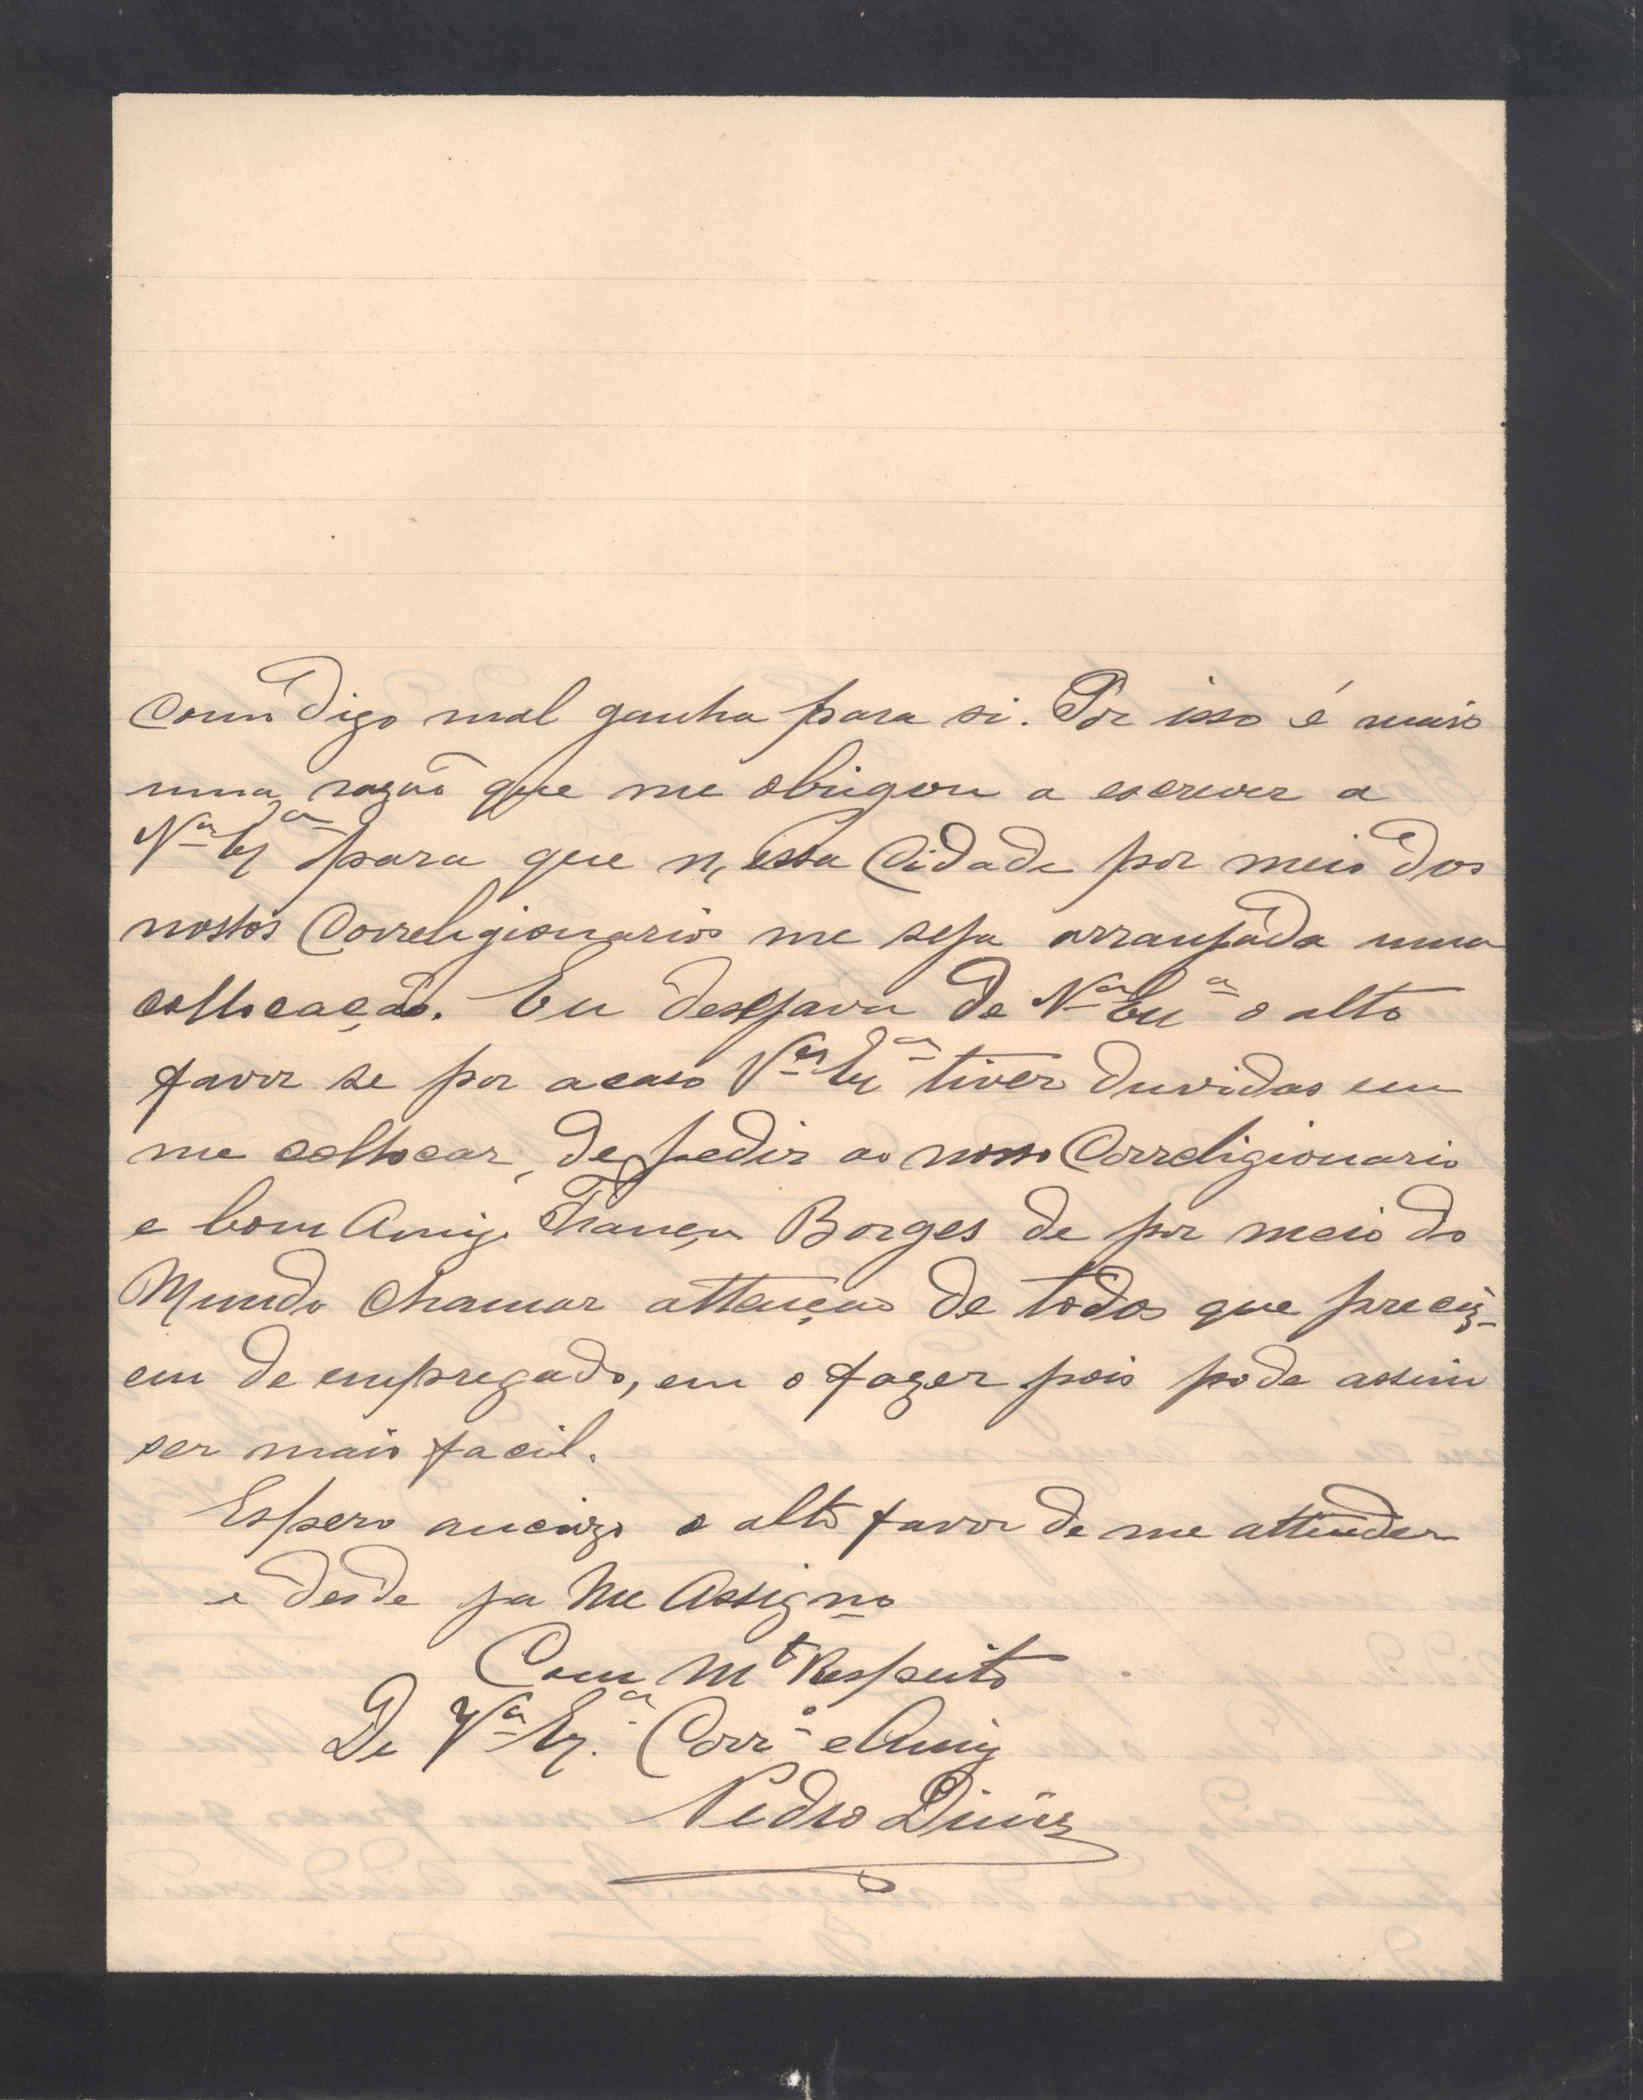 como digo mal ganha para si. Por isso é mais
uma razão que me obrigou a escrever a
Vª Exª para que n'essa Cidade por meio dos
nossos Correligionarios me seja arranjada uma
collocação. Eu desejava de Vª Exª o alto
favor se por acaso Vª Exª tiver duvidas em
me collocar, de pedir ao nosso Correligionario
e bom Amigo França Borges de por meio do
Mundo chamar attenção de todos que preciz-
em de empregado, em o fazer pois pode assim
ser mais facil.
Espero ancioso o alto favor de me attender
e desde ja Me Assigno
Com Mto Respeito
De Vª Exª Corrº e Amigo
Pedro Diniz